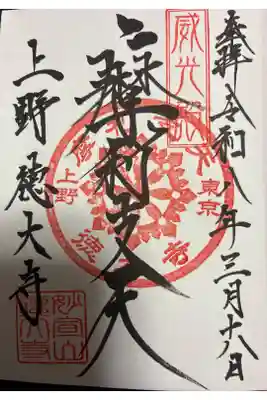 奉拝 令和八年三月十八日
威光殿
摩利支天
上野 東京
上野 徳大寺